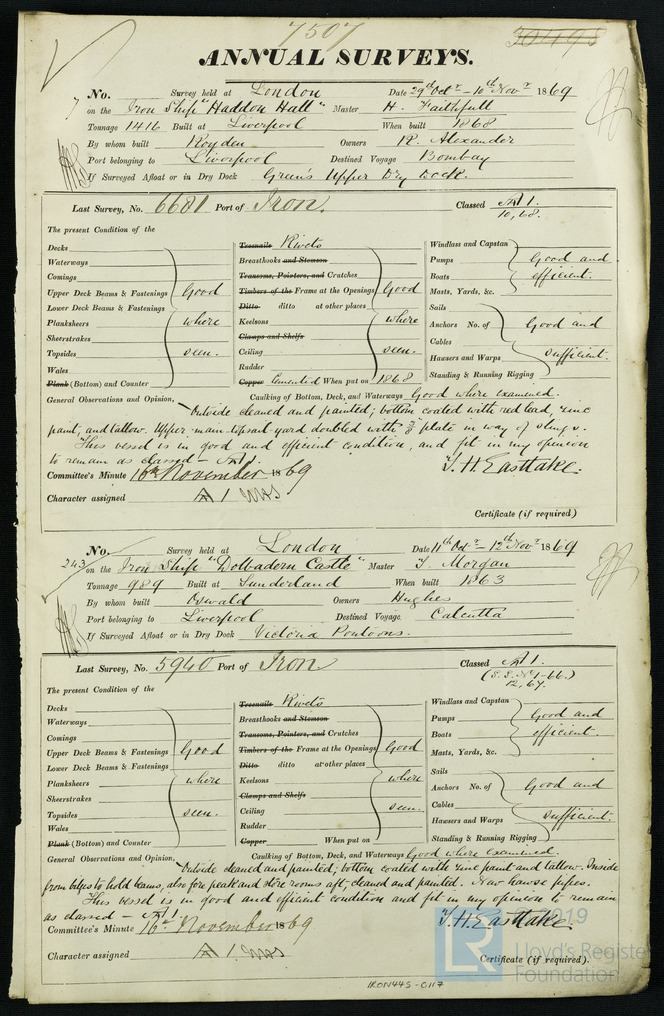 7507
ANNUAL SURVEYS.
No. Survey held at London Date 29th Octr – 10th Novr 1869
7 on the Iron Ship "Haddon Hall" Master H. Faithfull
Tonnage 1416 Built at Liverpool When built 1868
By whom built Royden Owners R. Alexander
Port belonging to Liverpool Destined Voyage Bombay
If Surveyed Afloat or in Dry Dock Green's Upper Dry Dock.
Last Survey, No. 6681 Port of Iron. Classed A1.
10,68.
The present Condition of the
Decks
Waterways
Comings
Upper Deck Beams & Fastenings
Lower Deck Beams & Fastenings
Planksheers
Sheerstrakes
Topsides
Wales
Plank (Bottom) and Counter
Good
where
seen.
Treenails Rivets
Breasthooks and Stemson
Transoms, Pointers, and Crutches
Timbers of the Frame at the Openings
Ditto ditto at other places
Keelsons
Clamps and Shelfs
Ceiling
Rudder
Copper Cemented When put on 1868
Good
where
seen.
Windlass and Capstan
Pumps
Boats
Masts, Yards, &c.
Good and
efficient.
Sails
Anchors No. of
Cables
Hawsers and Warps
Standing & Running Rigging
Good and
sufficient.
General Observations and Opinion, Caulking of Bottom, Deck, and Waterways Good where examined.
– Outside cleaned and painted; bottom coated with red lead, zinc
paint, and tallow. Upper main-topsail yard doubled with 3/8 plate in way of slings.
This vessel is in good and efficient condition, and fit in my opinion
to remain as classed – A1.
Committee's Minute 16th November 1869 T. H. Easttake.
Character assigned A1
Certificate (if required)
No. Survey held at London Date 11th Octr – 12th Novr 1869
243 on the Iron Ship "Dolbadern Castle" Master T. Morgan
Tonnage 989 Built at Sunderland When built 1863
By whom built Oswald Owners Hughes
Port belonging to Liverpool Destined Voyage Calcutta
If Surveyed Afloat or in Dry Dock Victoria Pontoons.
Last Survey, No. 5940 Port of Iron Classed A1.
(S.S. No 1–66.)
12,67.
The present Condition of the
Decks
Waterways
Comings
Upper Deck Beams & Fastenings
Lower Deck Beams & Fastenings
Planksheers
Sheerstrakes
Topsides
Wales
Plank (Bottom) and Counter
Good
where
seen.
Treenails Rivets
Breasthooks and Stemson
Transoms, Pointers, and Crutches
Timbers of the Frame at the Openings
Ditto ditto at other places
Keelsons
Clamps and Shelfs
Ceiling
Rudder
Copper When put on
Good
where
seen.
Windlass and Capstan
Pumps
Boats
Masts, Yards, &c.
Good and
efficient
Sails
Anchors No. of
Cables
Hawsers and Warps
Standing & Running Rigging
Good and
sufficient.
General Observations and Opinion, Caulking of Bottom, Deck, and Waterways Good where examined.
– Outside cleaned and painted; bottom coated with zinc paint and tallow. Inside
from bilges to hold beams, also fore peak and store rooms aft, cleaned and painted. New hawse pipes.
This vessel is in good and efficient condition and fit in my opinion to remain
as classed – A1
Committee's Minute 16th November 1869 T. H. Easttake.
Character assigned A1.
Certificate (if required).
IRON445-0117
2019
LR
Lloyd's Register
Foundation